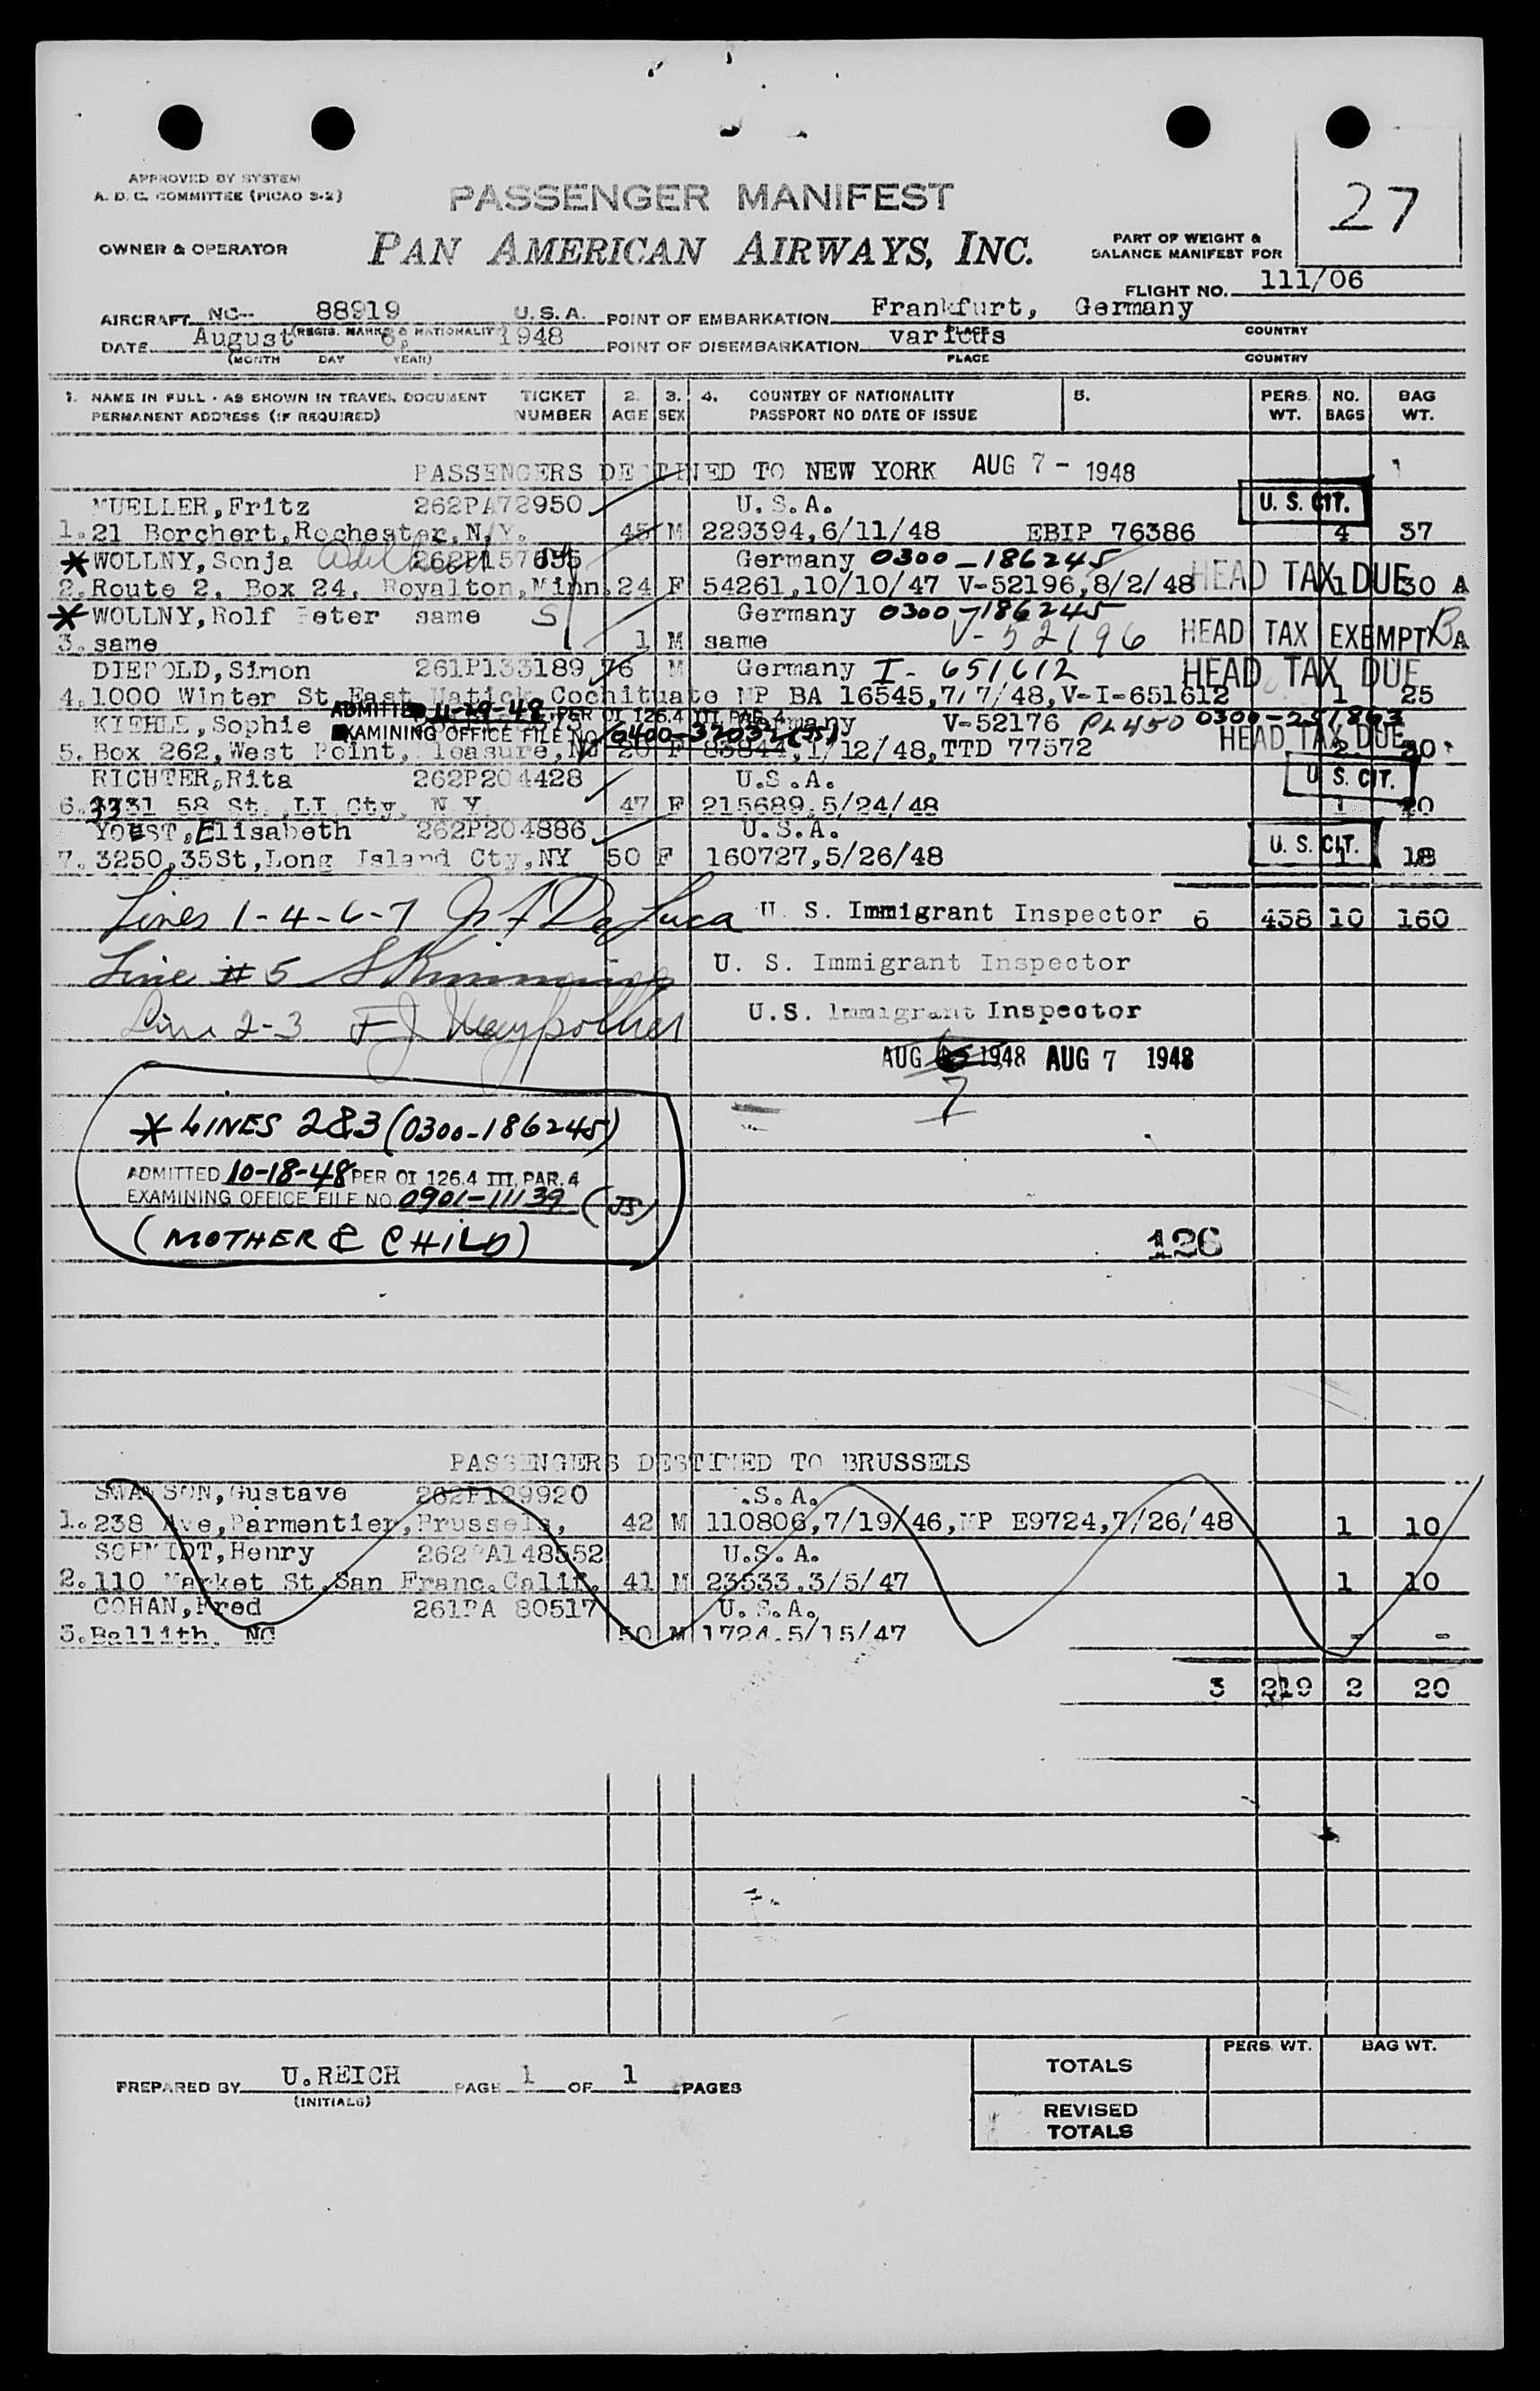 27
APPROVED BY SYSTEM
A. D. C. COMMITTEE (PICAO S-2)
PASSENGER MANIFEST
OWNER & OPERATOR
PAN AMERICAN AIRWAYS, INC.
PART OF WEIGHT &
BALANCE MANIFEST FOR
FLIGHT NO. 111/06
AIRCRAFT NC- 88919 U.S.A. POINT OF EMBARKATION Frankfurt, Germany
(REGIS. MARKS & NATIONALITY) PLACE COUNTRY
DATE August 6, 1948 POINT OF DISEMBARKATION various
(MONTH DAY YEAR) PLACE COUNTRY
1. NAME IN FULL - AS SHOWN IN TRAVEL DOCUMENT TICKET 2. 3. 4. COUNTRY OF NATIONALITY 5. PERS. NO. BAG
PERMANENT ADDRESS (IF REQUIRED) NUMBER AGE SEX PASSPORT NO DATE OF ISSUE WT. BAGS WT.
PASSENGERS DESTINED TO NEW YORK AUG 7 - 1948
MUELLER, Fritz 262PA72950 U.S.A. U. S. CIT.
1. 21 Borchert, Rochester, N.Y. 45 M 229394,6/11/48 EBIP 76386 4 37
* WOLLNY, Sonja Germany 0300-186245
2. Route 2, Box 24, Royalton, Minn. 24 F 54261,10/10/47 V-52196,8/2/48 HEAD TAX DUE 1 30 A
* WOLLNY, Rolf Peter same S Germany 0300-186245
3. same 1 M same V-52196 HEAD TAX EXEMPT B A
DIEPOLD, Simon 261P133189 76 M Germany I-651612 HEAD TAX DUE
4. 1000 Winter St, East Natick, Cochituate MP BA 16545,7/7/48, V-I-651612 1 25
KIEHLE, Sophie ADMITTED 11-29-48, PER OI 126.4 III, PAR. 4 Germany V-52176 PL450 0300-251863
EXAMINING OFFICE FILE NO. 0400-37032 (JS) HEAD TAX DUE
5. Box 262, West Point, NJ 20 F 83844,1/12/48, TTD 77572 2 30
RICHTER, Rita 262P204428 U.S.A. U. S. CIT.
6. 3331 58 St., LI Cty, N.Y. 47 F 215689,5/24/48 1 20
YOUST, Elisabeth 262P204886 U.S.A. U. S. CIT.
7. 3250,35St, Long Island Cty, NY 50 F 160727,5/26/48 1 18
Lines 1-4-6-7 De Luca U. S. Immigrant Inspector 6 438 10 160
Line # 5 U. S. Immigrant Inspector
Line 2-3 U.S. Immigrant Inspector
AUG 1948 AUG 7 1948
7
* LINES 2&3 (0300-186245)
ADMITTED 10-18-48 PER OI 126.4 III, PAR. 4
EXAMINING OFFICE FILE NO. 0901-11139 (JS)
(MOTHER & CHILD)
126
PASSENGERS DESTINED TO BRUSSELS
SWANSON, Gustave 262P129920 .S.A.
1. 238 Ave, Parmentier, Brussels, 42 M 110806,7/19/46, MP E9724,7/26/48 1 10
SCHMIDT, Henry 262PA148552 U.S.A.
2. 110 Market St, San Franc. Calif. 41 M 23533,3/5/47 1 10
COHAN, Fred 261PA 80517 U.S.A.
3. Ballith, NC 50 M 1724,5/15/47 - -
3 219 2 20
PERS. WT. BAG WT.
TOTALS
PREPARED BY U.REICH PAGE 1 OF 1 PAGES
(INITIALS)
REVISED
TOTALS